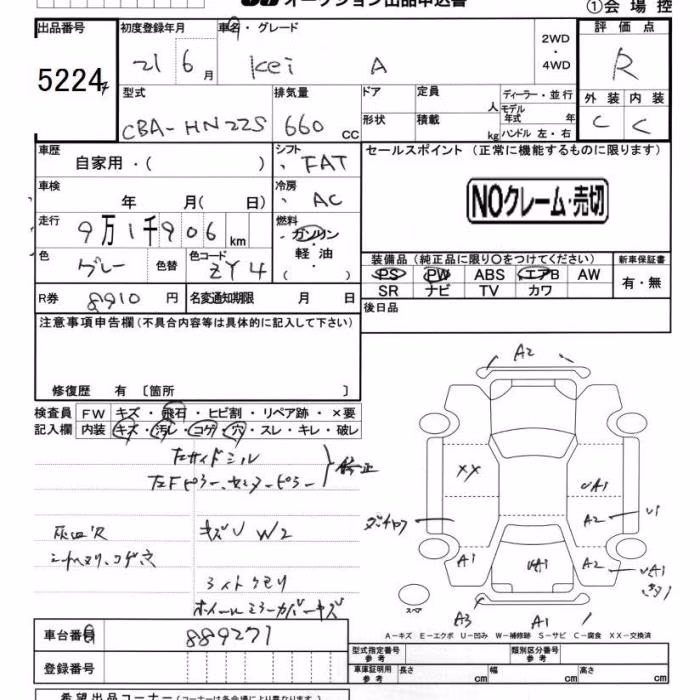 オークション出品申込書
①会場控
出品番号
初度登録年月
車名・グレード
2WD
・
4WD
評価点
5224
21 6 月
Kei A
R
型式
排気量
ドア
定員
人
ディーラー・並行
外装 内装
CBA-HN22S
660 cc
形状
積載
kg
モデル年式 年
ハンドル 左・右
C C
車歴
自家用・( )
シフト
FAT
セールスポイント (正常に機能するものに限ります)
車検
年 月( 日)
冷房
AC
NOクレーム・売切
走行
9万1千906 km
燃料
ガソリン
・
軽油
( )
色
グレー
色替
色コード
ZY4
装備品 (純正品に限り○をつけてください)
新車保証書
PS PW ABS エアB AW
有・無
SR ナビ TV カワ
R券
8910 円
名変通知期限 月 日
後日品
注意事項申告欄 (不具合内容等は具体的に記入して下さい)
修復歴 有 〔箇所 〕
検査員
記入欄
FW キズ・飛石・ヒビ割・リペア跡・×要
内装 キズ・汚レ・コゲ・穴・スレ・キレ・破レ
左サイドシル
左Fピラー、センターピラー
修正
灰皿欠
キズU W2
シートスリ、コゲ穴
ライトクモリ
ホイールミラーカバーキズ
A2
XX
UA1
A2
U1
A1
UA1
A2
UA1
A3
A1
スペア
A-キズ E-エクボ U-凹み W-補修跡 S-サビ C-腐食 XX-交換済
車台番号
889271
登録番号
型式指定番号
参考
類別区分番号
参考
車庫証明用
参考
長さ cm
幅 cm
高さ cm
希望出品コーナー (コーナーは各会場により異なります)